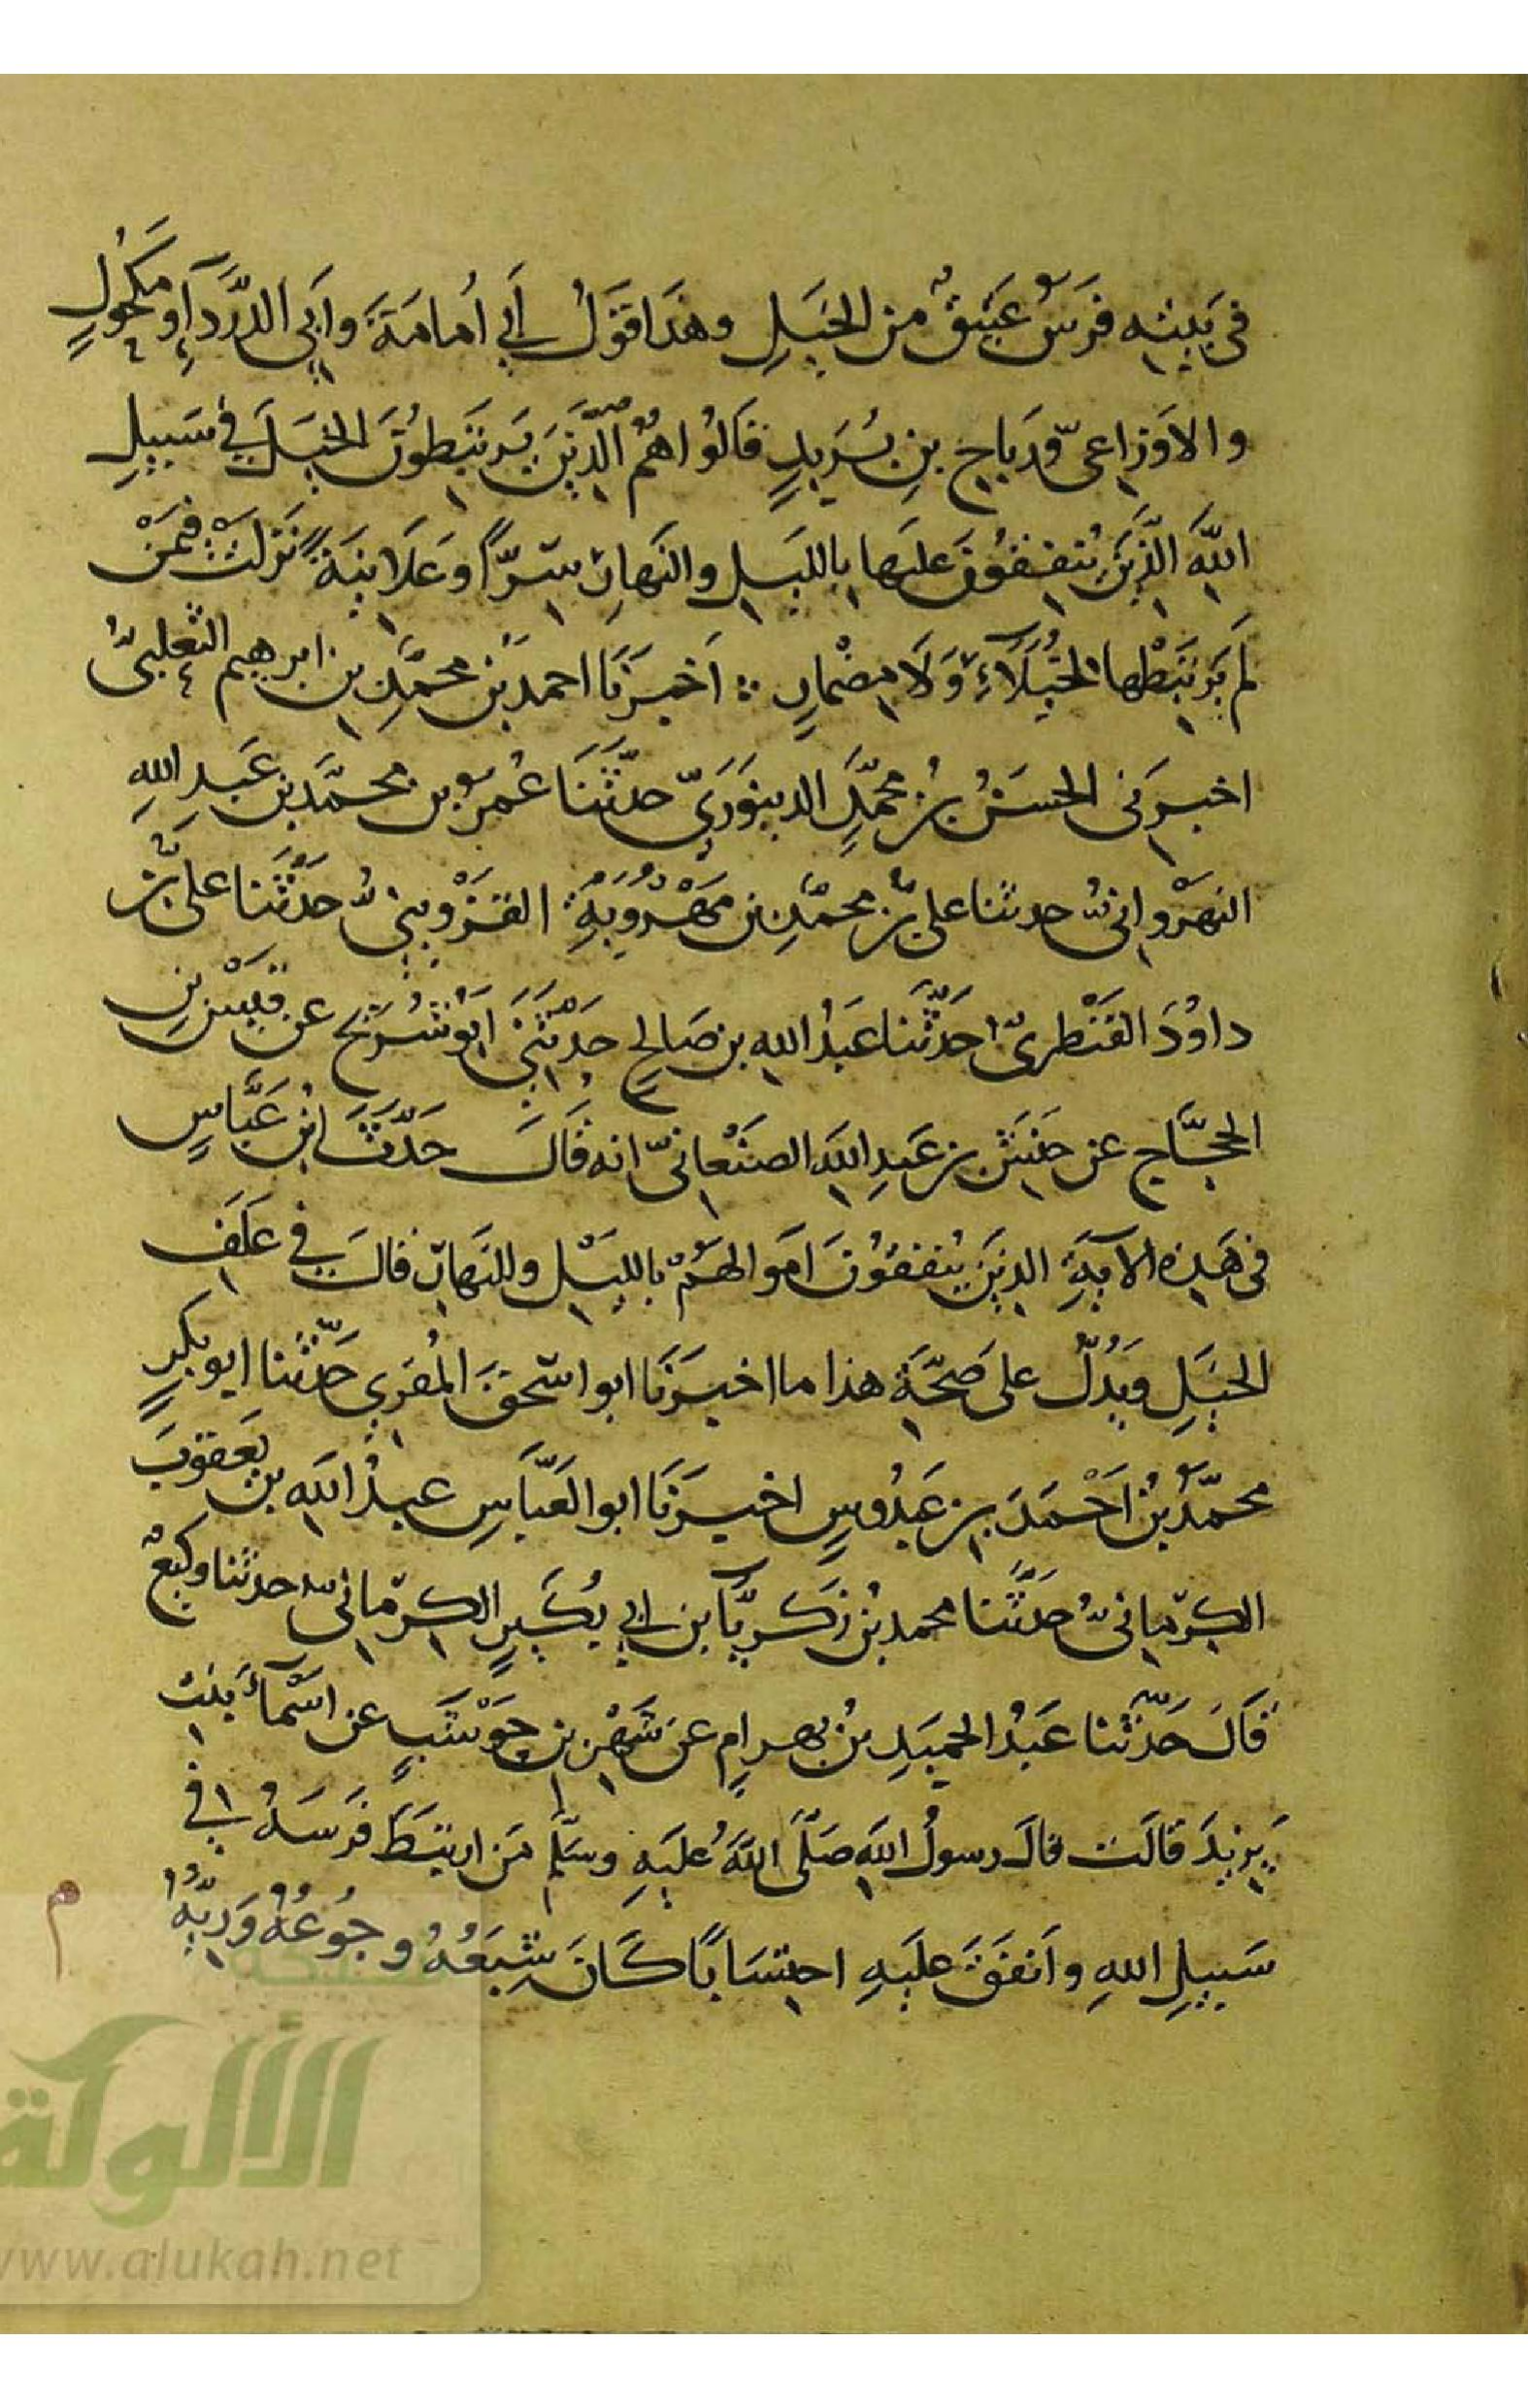 في بَيْتِه فرَسٌ عَتِيقٌ من الخَيلِ وهذَا قَوْلُ أَبي أُمامَةَ وأَبِى الدَّرْدَآءِ ومَكْحُولٍ
والاَوْزاعىّ ورَباحِ بنِ يُرَيدٍ قَالُوا هُمُ الَّذِينَ يَرتَبِطُونَ الخيْلَ في سَبيلِ
اللّهِ الَّذِينَ يُنفِقُونَ عليها بِالليلِ والنَهارِ سِرًّا وَعَلَانِيَةً نَزَلَتْ فِمَنْ
لَم يَرْتَبِطْها الخُيَلَآءِ وَلَا مِضْمارٍ ∴ اَخبرَنَا احمدُ بْن محمَّدِ بن ابرهيم الثعلبىُّ
اخبرَنى الحسَنُ بنُ محمَّدٍ الدينوَرَيّ حدَّثَنَا عُمرُ بن محمَّد بن عَبدِ اللهِ
النهرْوانىُّ حدثنا على بنُ محمَّدِ بن مَهْرُوَيةِ القزْوِينىُّ حَدَّثَنا علىُّ بنُ
داوُدَ القَنْطرىّ حَدَّثَنا عَبدُ اللهِ بن صَالحٍ حدَّثَنِى ابُو شُرَيح عن قيسِ بنِ
الحجَّاج عن حَنشَ بن عَبدِ اللهِ الصنْعانىّ انه قَالَ حَدَّثَنَا ابْن عَبَّاسٍ
فى هَذِه الآيةِ الذينَ يُنفقوُنَ اَمَوالهُمْ بالليْلِ وللنَهارِ قالَ في عَلَفِ
الخيَلِ ويَدُلُّ على صِحَّةِ هذا ما اخبرَنَا ابو اسْحقَ المُقرِي حَدَّثَنا ابو بكرٍ
محمَّدُ بْنُ اَحْمَدَ بن عَبْدُوسٍ اخبرَنَا ابو العَبَّاسِ عبدُ اللهِ بن يعَقوبَ
الكرْمِانىُّ حَدَّثَنا محمد بْن زكريَّآ بن ابي بُكَيرٍ الكرْمانىُّ حدثنا وكيعٌ
قَالَ حَدَّثنا عَبْدُ الحميَدِ بنُ بهرامٍ عنَ شَهْرِ بنِ حَوْشَبٍ عن اَسْمآءَ بنتِ
يَزِيدَ قالَتَ قالَ رسولُ اللهِ صَلَّى اللّهُ عليَهِ وسَلَّم مَن ارتبَطَ فَرَسَهُ في
سَبيلِ اللهِ واَنفقَ عليَهِ احتِسَابًا كَانَ شِبَعُهُ وجُوعُهُ وَرِيُّهُ
م
شبكة
الألوكة
www.alukah.net